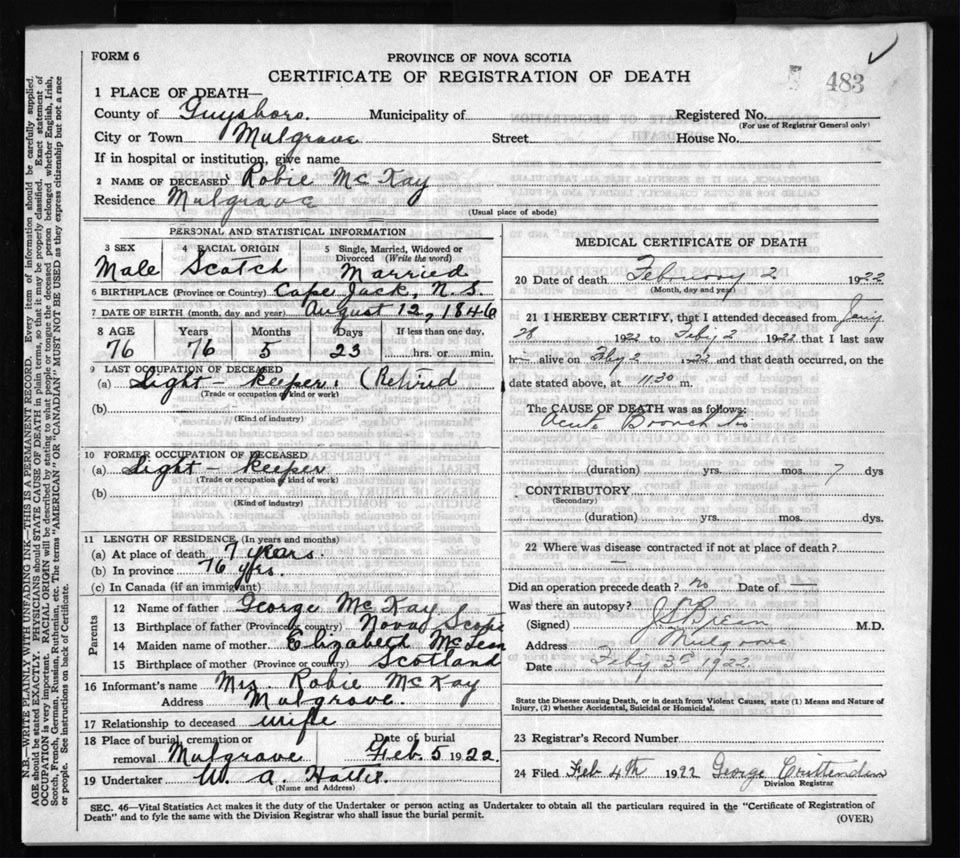 FORM 6
PROVINCE OF NOVA SCOTIA
CERTIFICATE OF REGISTRATION OF DEATH
483
1 PLACE OF DEATH—
County of Guysboro. Municipality of Registered No.
(For use of Registrar General only)
City or Town Mulgrave Street House No.
If in hospital or institution, give name
2 NAME OF DECEASED Robie McKay
Residence Mulgrave
(Usual place of abode)
PERSONAL AND STATISTICAL INFORMATION
3 SEX 4 RACIAL ORIGIN 5 Single, Married, Widowed or Divorced (Write the word)
Male Scotch Married
6 BIRTHPLACE (Province or Country) Cape Jack, N.S.
7 DATE OF BIRTH (month, day and year) August 12, 1846
8 AGE Years Months Days If less than one day,
76 76 5 23 hrs. or min.
9 LAST OCCUPATION OF DECEASED
(a) Light-keeper. (Retired
(Trade or occupation or kind of work)
(b)
(Kind of industry)
10 FORMER OCCUPATION OF DECEASED
(a) Light-keeper
(Trade or occupation or kind of work)
(b)
(Kind of industry)
11 LENGTH OF RESIDENCE (In years and months)
(a) At place of death 7 years.
(b) In province 76 yrs.
(c) In Canada (if an immigrant)
Parents
12 Name of father George McKay
13 Birthplace of father (Province or country) Nova Scotia
14 Maiden name of mother Elizabeth McLean
15 Birthplace of mother (Province or country) Scotland
16 Informant's name Mrs. Robie McKay
Address Mulgrave.
17 Relationship to deceased wife
18 Place of burial, cremation or removal Mulgrave Date of burial Feb. 5 1922.
19 Undertaker W. A.
(Name and Address)
MEDICAL CERTIFICATE OF DEATH
20 Date of death February 2 1922
(Month, day and year)
21 I HEREBY CERTIFY, that I attended deceased from Jany
28 1922 to Feby 2 1922 that I last saw
h alive on Feby 2 22 and that death occurred, on the
date stated above, at 11.30 m.
The CAUSE OF DEATH was as follows:
Acute Bronchitis
(duration) yrs. mos. 7 dys
CONTRIBUTORY
(Secondary)
(duration) yrs. mos. dys.
22 Where was disease contracted if not at place of death?
—
Did an operation precede death? no Date of —
Was there an autopsy?
(Signed) M.D.
Address Mulgrave
Date Feby 3rd 1922
State the Disease causing Death, or in death from Violent Causes, state (1) Means and Nature of Injury, (2) whether Accidental, Suicidal or Homicidal.
23 Registrar's Record Number
24 Filed Feb 4th 1922 George Crittenden
Division Registrar
SEC. 46—Vital Statistics Act makes it the duty of the Undertaker or person acting as Undertaker to obtain all the particulars required in the "Certificate of Registration of
Death" and to fyle the same with the Division Registrar who shall issue the burial permit.
(OVER)
N.B.—WRITE PLAINLY WITH UNFADING INK—THIS IS A PERMANENT RECORD. Every item of information should be carefully supplied.
AGE should be stated EXACTLY. PHYSICIANS should STATE CAUSE OF DEATH in plain terms, so that it may be properly classified. Exact statement of
OCCUPATION is very important. RACIAL ORIGIN will be described by stating to what people or tongue the deceased person belonged whether English, Irish,
Scotch, French, German, Russian, Ruthenian, etc. The terms "AMERICAN" or "CANADIAN" MUST NOT BE USED as they express citizenship but not a race
or people. See instructions on back of Certificate.